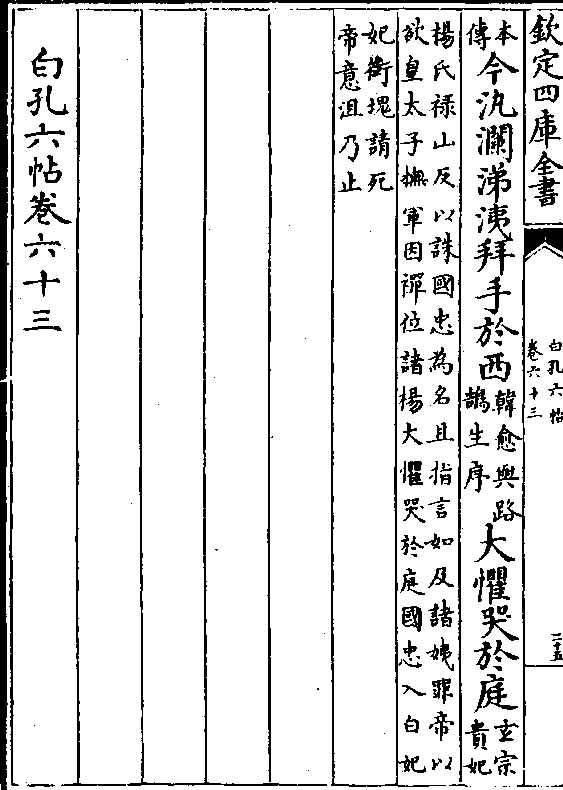 欽定四庫全書
白孔六帖
卷六十三
二十五
本傳今汍瀾涕洟拜手於西韓愈與路鵠生序大懼哭於庭玄宗貴妃
楊氏祿山反以誅國忠為名且指言妃及諸姨罪帝以
欲皇太子撫軍因禪位諸楊大懼哭於庭國忠入白妃
妃銜塊請死
帝意沮乃止
白孔六帖卷六十三